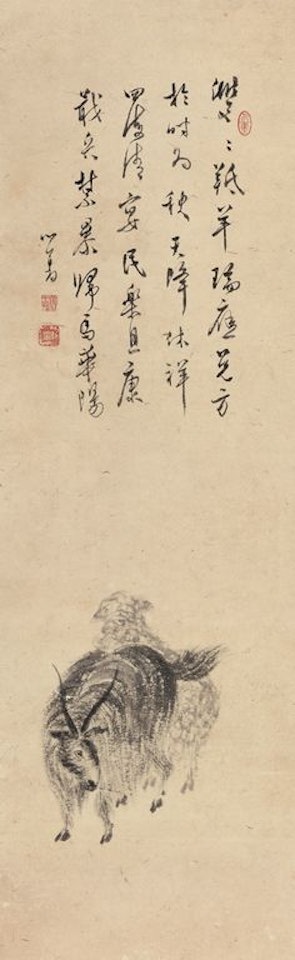 濈〻羝羊瑞應兌方
於時為秋天降休祥
四海清宴民樂且康
戢兵禁暴歸馬華陽
心畬